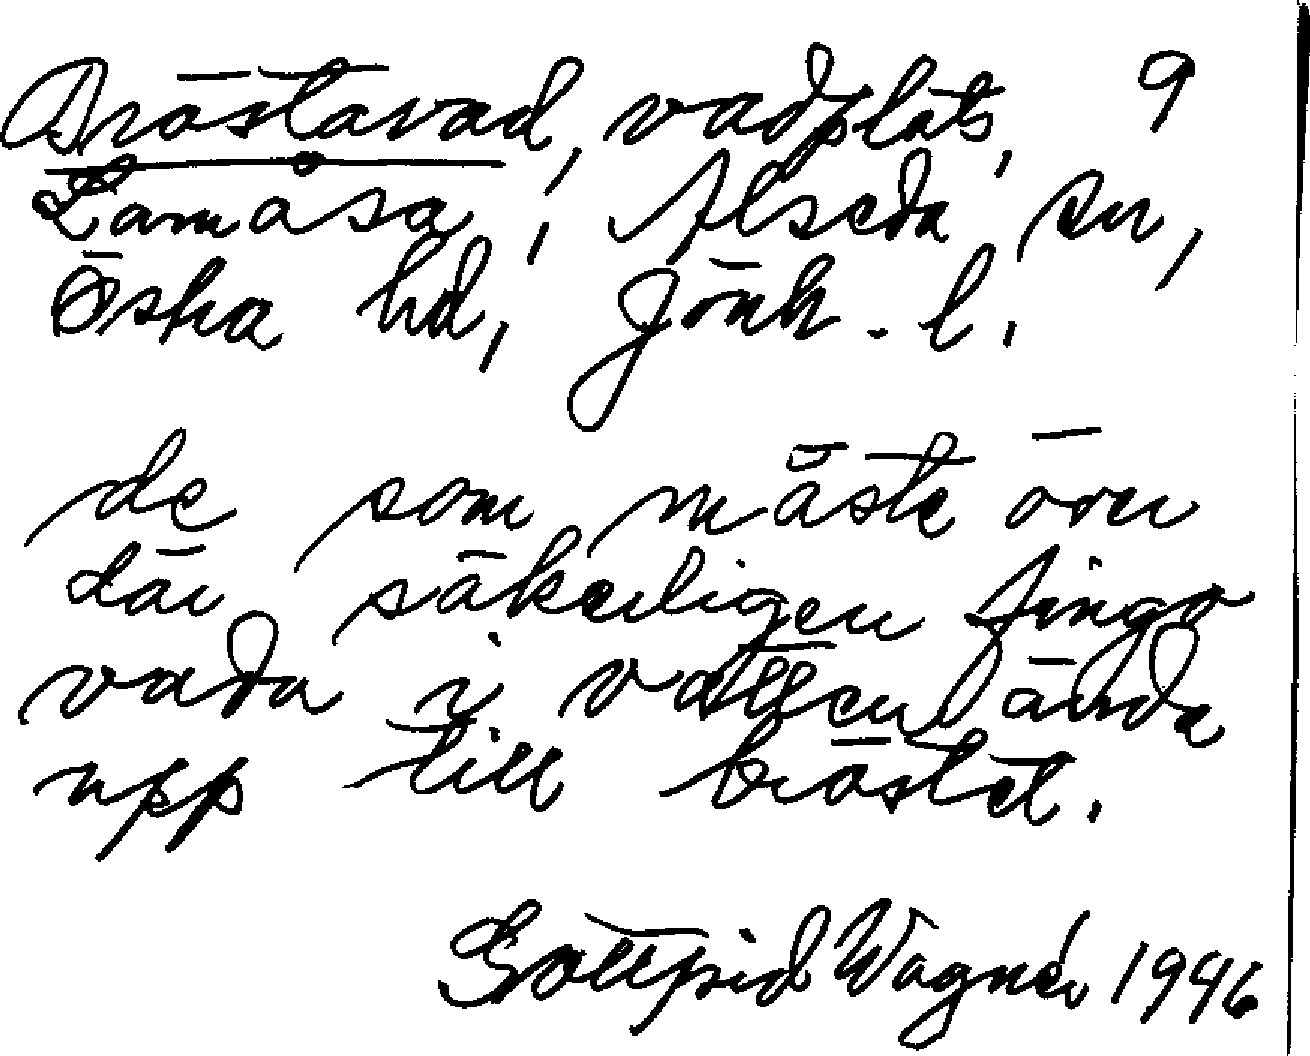 Bröstavad, vadplats, 9
Lamåsa, Alseda sn,
Östra hd, Jönk. l.
de som måste över
där säkerligen fingo
vada i vattnet ända
upp till bröstet.
Gottfrid Wagnér 1946